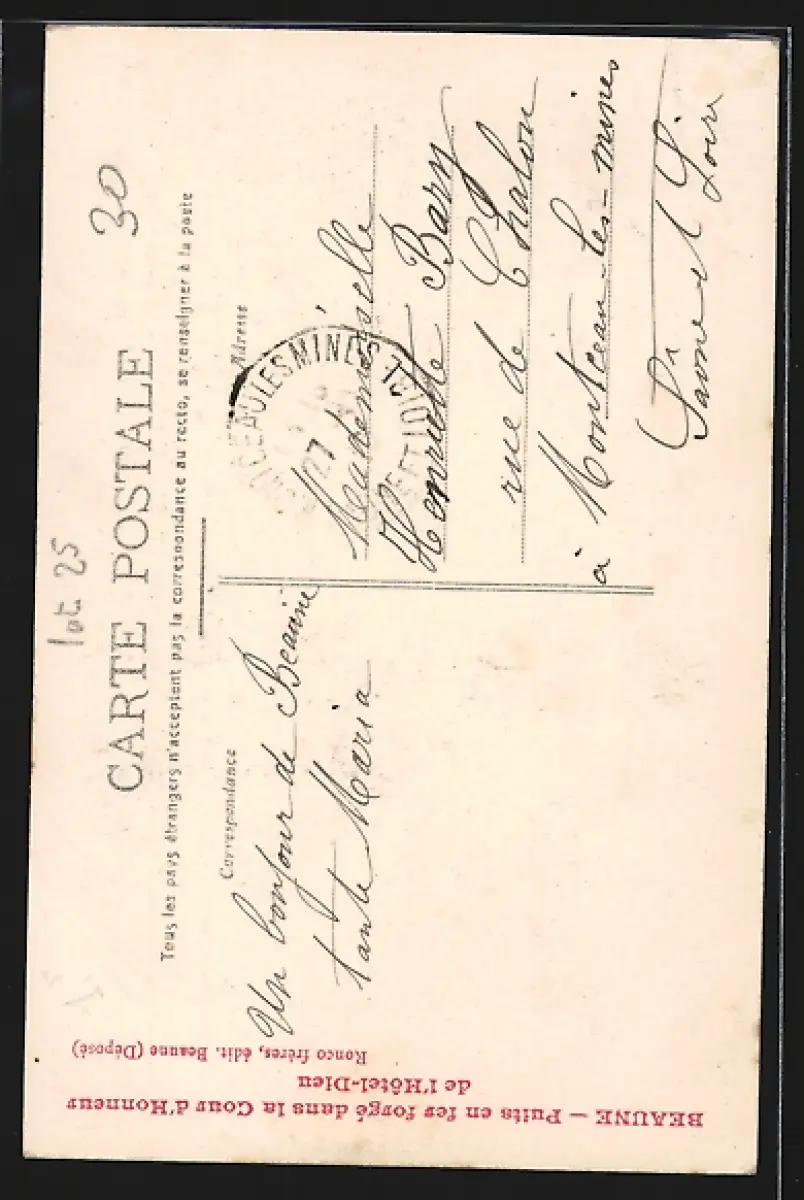 lot 25
CARTE POSTALE
30
Tous les pays étrangers n'acceptent pas la correspondance au recto, se renseigner à la poste
Correspondance
Adresse
Un bonjour de Beaune
tante Maria
Mademoiselle
Henriette Bary
rue de Chalon
à Montceau-les-mines
Saône et Loire
LES MINES
27
ET LOIRE
BEAUNE — Puits en fer forgé dans la Cour d'Honneur
de l'Hôtel-Dieu
Ronco frères, édit. Beaune (Déposé)